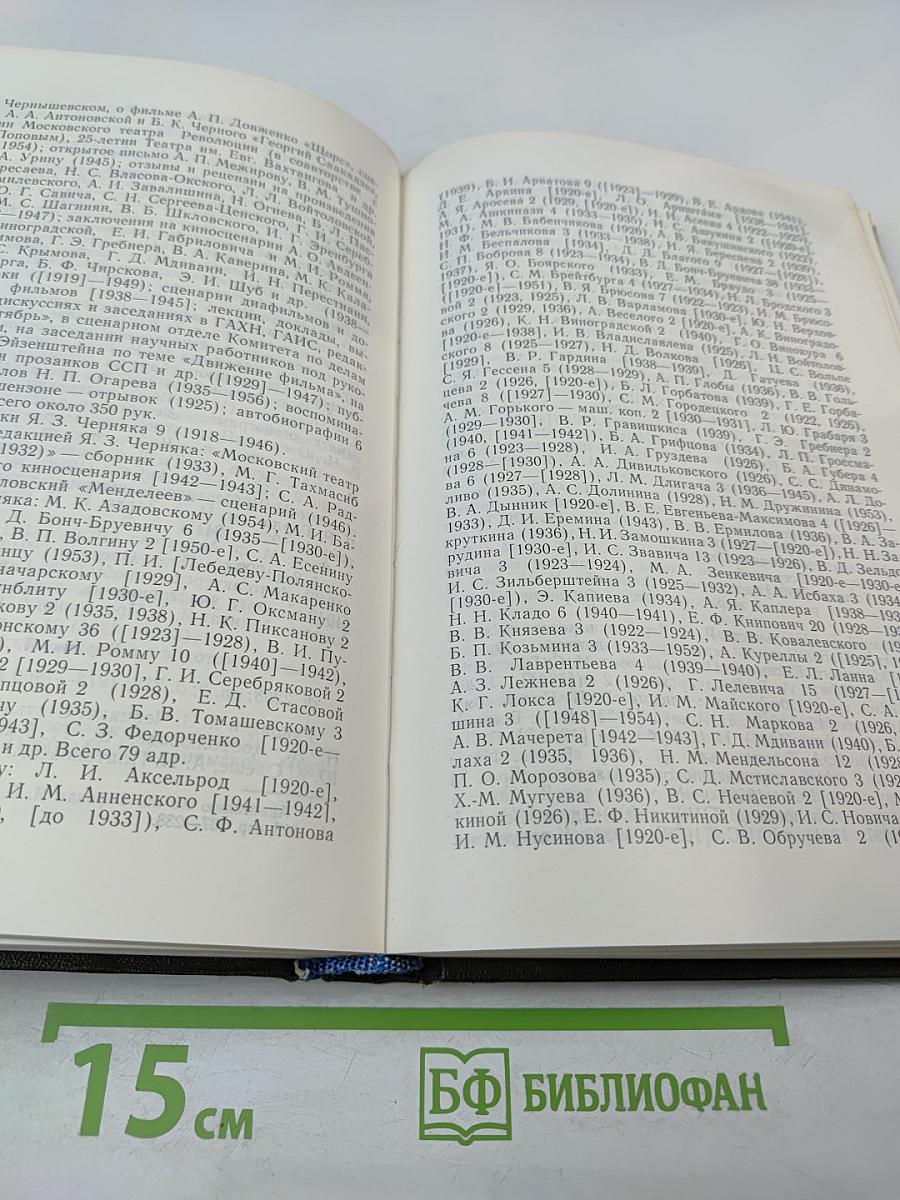 Чернышевском, о фильме А. П. Довженко «Щорс», сце-
А. А. Антоновской и Б. К. Черного «Георгий Саакадзе»,
ии Московского театра Революции (в соавторстве с
Поповым), 25-летии Театра им. Евг. Вахтангова и др.
1954); открытое письмо А. П. Межирову, В. М. Тушно-
А. Урину (1945); отзывы и рецензии на произведения
ресаева, Н. С. Власова-Окского, Л. Л. Войтоловской,
милевского, А. И. Завалишина, Н. Огнева, Г. И. Сереб-
О. Г. Савича, С. Н. Сергеева-Ценского, И. Г. Эренбурга
М. С. Шагинян, В. Б. Шкловского,
—1947); заключения на киносценарии А. О. Авдеен-
иноградской, Е. И. Габриловича и М. И. Ромма,
имова, Г. Э. Гребнера, В. А. Каверина, М. К. Кала-
Крымова, Г. Д. Мдивани, И. Н. Перестиани,
рга, Б. Ф. Чирскова, Э. И. Шуб и др. (1938—
ки ([1919]—1949); сценарии диафильмов и
фильмов [1938—1945]; лекции, доклады, вы-
дискуссиях и заседаниях в ГАХН, ГАИС, редак-
тябрь», в сценарном отделе Комитета по делам
и, на заседании научных работников под руко-
Эйзенштейна по теме «Движение фильма», на
и прозаиков ССП и др. ([1929]—1947); пуб-
лов Н. П. Огарева (1935—1956); воспомина-
шензоне — отрывок (1925); автобиографии 6
сего около 350 рук.
ки Я. З. Черняка 9 (1918—1946).
едакцией Я. З. Черняка: «Московский театр
1932)» — сборник (1933), М. Г. Тахмасиб
го киносценария [1942—1943]; С. А. Рад-
ловский «Менделеев» — сценарий (1946).
няка: М. К. Азадовскому (1954), М. И. Ба-
Д. Бонч-Бруевичу 6 (1935—[1930-е]),
, В. П. Волгину 2 [1950-е], С. А. Есенину
нцу (1953), П. И. [Лебедеву-Полянско-
начарскому [1929], А. С. Макаренко
унблиту [1930-е], Ю. Г. Оксману 2
кову 2 (1935, 1938), Н. К. Пиксанову 2
онскому 36 ([1923]—1928), В. И. Пу-
), М. И. Ромму 10 ([1940]—1942),
2 [1929—1930], Г. И. Серебряковой 2
пцовой 2 (1928), Е. Д. Стасовой
чу (1935), Б. В. Томашевскому 3
943], С. З. Федорченко [1920-е—
и др. Всего 79 адр.
у: Л. И. Аксельрод [1920-е],
И. М. Анненского [1941—1942],
, [до 1933]), С. Ф. Антонова
(1939), Б. И. Арватова 9 ([1923]—1929), В. Е. Ардова (1941),
Д. Е. Аркина [1920-е], Л. О. Арнштама
А. Я. Аросева 2 (1929, [1920-е]), Н. Н. Асеева 4 (1922—
М. А. Ашкинази 4 (1933—1935), Н. С. Ашукина 2 ([1929],
1931), М. В. Бабенчикова (1926), И. В. Бакушинского
Н. Ф. Бельчикова 3 (1933—1938), Н. Я. Берестнева 2 (1939),
И. М. Беспалова [1934], Д. Д. Благого 9 (1927—
С. П. Боброва 8 (1923—1934), В. Д. Бонч-Бруевича 38 (1933—
1937), Я. О. Боярского (1933), Е. М. Браудо 3 (1925—
([1920-е]—1951), В. Я. Брюсова 7 (1922—1923), И. М. Брюсо-
вой 2 (1923, 1925), Л. В. Варламова [1930-е], Ю. Н. Верхов-
ского 2 (1929, 1936), А. Веселого 2 [1920-е], В. К. Виноградо-
ва (1926), К. Н. Виноградской 2 (1940), Г. О. Винокура 6
[1920-е—1938], И. В. Владиславлева (1925), Л. Н. Войтолов-
ского 8 (1925—1927), Н. Д. Волкова [1926], Ц. С. Вольпе
[1929], В. Р. Гардина [1938—1939], Д. Гатуева (1936),
С. Я. Гессена 5 (1928—1929), А. П. Глобы (1936), В. В. Голь-
цева 2 (1926, [1920-е]), Б. Л. Горбатова (1939), Г. Е. Горба-
чева 8 ([1927]—1930), С. М. Городецкого 2 (1922, 1926),
А. М. Горького — маш. коп. 2 [1930—1931], Л. Ю. Грабаря 3
(1929—1930], В. Р. Гравишкиса (1939), Г. Э. Гребнера 2
(1940, [1941—1942]), Б. А. Грифцова (1934), Л. П. Гроссма-
на 6 (1923—1928), И. А. Груздева (1926), Б. А. Губера 4
(1928—[1930]), А. А. Дивильковского (1926), С. С. Динамо-
ва 6 (1927—[1928]), Л. М. Длигача 3 (1936—1945), А. Л. До-
ливо (1935), А. С. Долинина (1928), Н. М. Дружинина (1953),
В. А. Дынник [1920-е], В. Е. Евгеньева-Максимова 4 ([1926]—
1933), Д. И. Еремина (1943), В. В. Ермилова (1936), В. А. За-
круткина (1936), Н. И. Замошкина 3 (1927—[1920-е]), Н. Н. За-
рудина [1930-е], И. С. Звавича 13 (1923—1926), В. Д. Зельдо-
вича 3 (1923—1924), М. А. Зенкевича [1920-е—1930-е
И. С. Зильберштейна 3 (1925—1932), А. А. Исбаха 3 (1934
[1930-е]), Э. Капиева (1934), А. Я. Каплера [1938—193
Н. Н. Кладо 6 (1940—1941), Е. Ф. Книпович 20 (1928—193
В. В. Князева 3 (1922—1924), В. В. Ковалевского (19
Б. П. Козьмина 3 (1933—1952), А. Куреллы 2 ([1925], 1
В. В. Лаврентьева 4 (1939—1940), Е. Л. Ланна [1
А. З. Лежнева 2 (1926), Г. Лелевича 15 (1927—[1
К. Г. Локса [1920-е], И. М. Майского [1920-е], С. А.
шина 3 ([1948]—1954), С. Н. Маркова 2 (1926,
А. В. Мачерета [1942—1943], Г. Д. Мдивани (1940), Б.
лаха 2 (1935, 1936), Н. М. Мендельсона 12 (1928
П. О. Морозова (1935), С. Д. Мстиславского 3 (192
Х.-М. Мугуева (1936), В. С. Нечаевой 2 [1920-е], М
киной (1926), Е. Ф. Никитиной (1929), И. С. Новича
И. М. Нусинова [1920-е], С. В. Обручева 2 (1
15 см
БФ БИБЛИОФАН